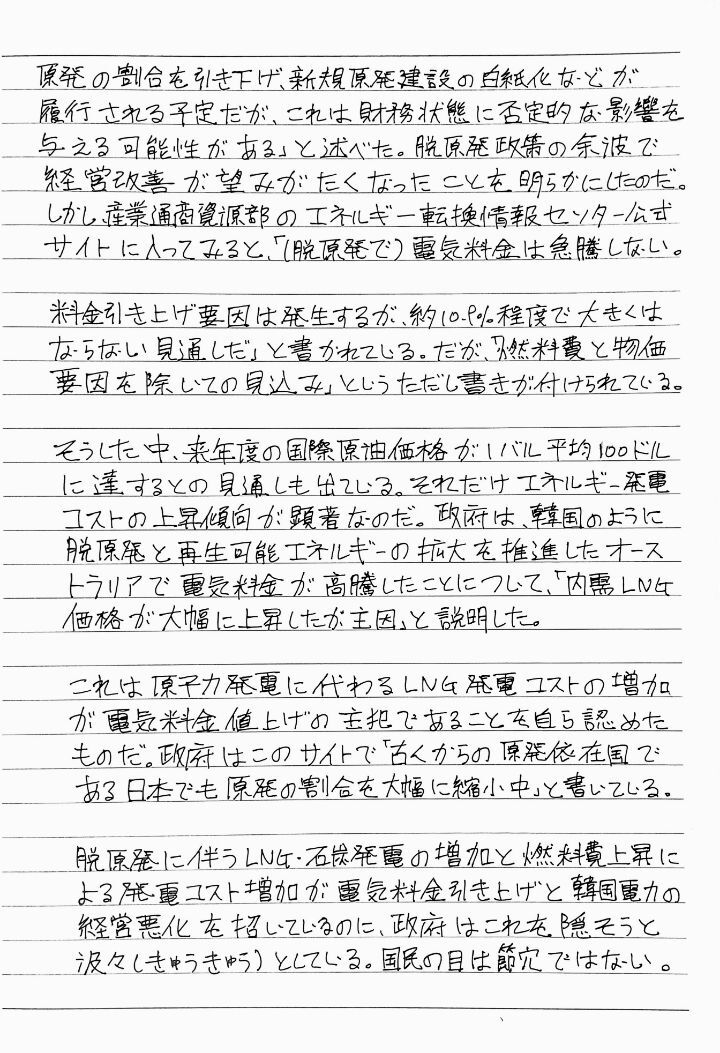 原発の割合を引き下げ、新規原発建設の白紙化などが
履行される予定だが、これは財務状態に否定的な影響を
与える可能性がある」と述べた。脱原発政策の余波で
経営改善が望みがたくなったことを明らかにしたのだ。
しかし、産業通商資源部のエネルギー転換情報センター公式
サイトに入ってみると、「(脱原発で)電気料金は急騰しない。
料金引き上げ要因は発生するが、約10.9%程度で大きくは
ならない見通しだ」と書かれている。だが、「燃料費と物価
要因を除いての見込み」というただし書きが付けられている。
そうした中、来年度の国際原油価格が1バル平均100ドル
に達するとの見通しも出ている。それだけエネルギー発電
コストの上昇傾向が顕著なのだ。政府は、韓国のように
脱原発と再生可能エネルギーの拡大を推進したオース
トラリアで電気料金が高騰したことについて、「内需LNG
価格が大幅に上昇したが主因」と説明した。
これは原子力発電に代わるLNG発電コストの増加
が電気料金値上げの主犯であることを自ら認めた
ものだ。政府はこのサイトで「古くからの原発依存国で
ある日本でも原発の割合を大幅に縮小中」と書いている。
脱原発に伴うLNG・石炭発電の増加と燃料費上昇に
よる発電コスト増加が電気料金引き上げと韓国電力の
経営悪化を招いているのに、政府はこれを隠そうと
汲々(きゅうきゅう)としている。国民の目は節穴ではない。